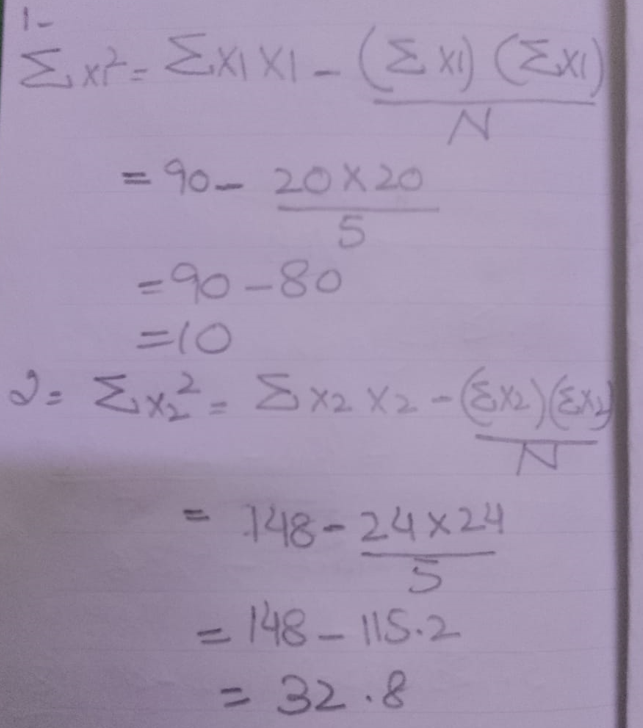 1-
Σx1² = ΣX1X1 - (ΣX1) (ΣX1)
N
= 90 - 20 X 20
5
= 90 - 80
= 10
2= Σx2² = ΣX2X2 - (ΣX2)(ΣX2)
N
= 148 - 24 X 24
5
= 148 - 115.2
= 32.8